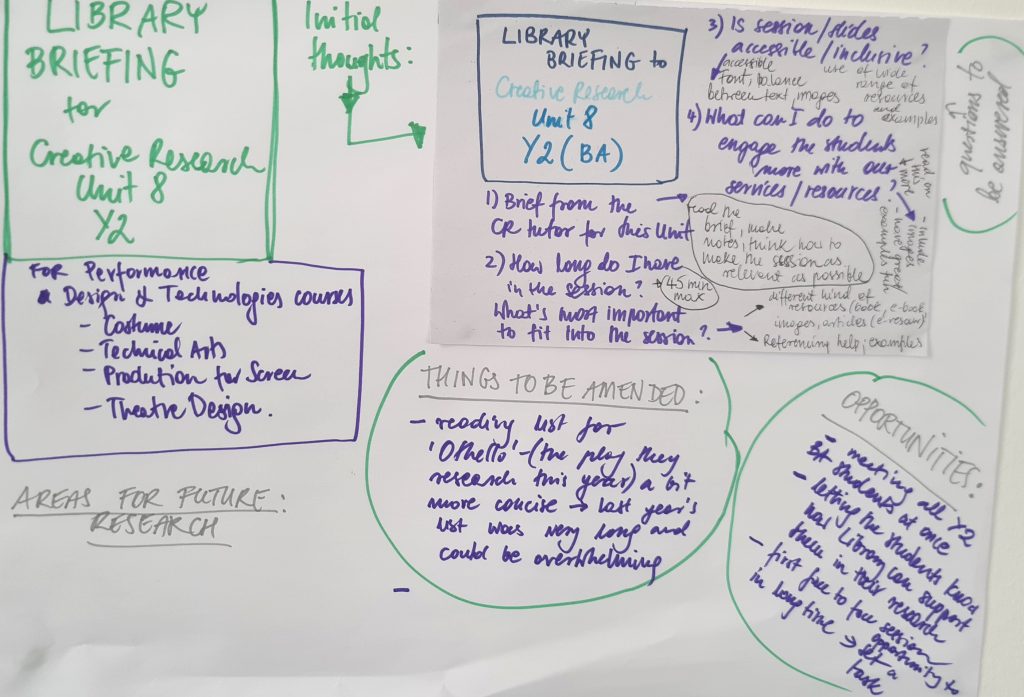 LIBRARY
BRIEFING
for
Creative Research
Unit 8
Y2
FOR Performance
Design & Technologies courses
- Costume
- Technical Arts
- Production for Screen
- Theatre Design.
AREAS FOR FUTURE:
RESEARCH
Initial
thoughts:
LIBRARY
BRIEFING to
Creative Research
Unit 8
Y2 (BA)
1) Brief from the
CR tutor for this Unit
read the
brief, make
notes, think how to
make the session as
relevant as possible
2) How long do I have
in the session?
45 min
max
What's most important
to fit into the session?
different kind of
resources (book, e-book
images, articles (e-resour)
Referencing help; examples
3) Is session/slides
accessible/inclusive?
accessible
Font, balance
between text, images
use of wide
range of
resources
and
examples
4) What can I do to
engage the students
more with our
services/resources?
read on
this
& more
- include
images
- have great
examples
questions to
be answered
THINGS TO BE AMENDED:
- reading list for
'Othello' - (the play they
research this year) a bit
more concise → last year's
list was very long and
could be overwhelming
-
OPPORTUNITIES:
- meeting all Y2
students at once
- letting the students know
how Library can support
them in their research
- first face to face session
in long time → opportunity to
set a
task